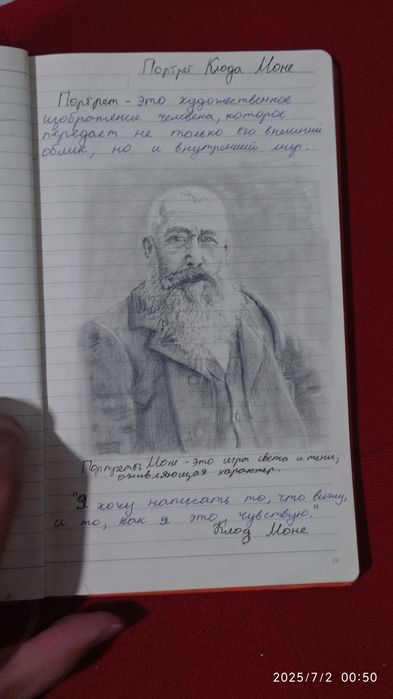 Портрет Клода Моне
Портрет - это художественное
изображение человека, которое
передает не только его внешний
облик, но и внутренний мир.
Портреты Моне - это игра света и тени,
оживляющая характер.
"Я хочу написать то, что вижу,
и то, как я это чувствую."
Клод Моне
2025/7/2 00:50